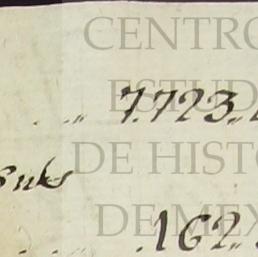 CENTRO
ESTUD
7.723.
DE HISTO
DE MEX
162